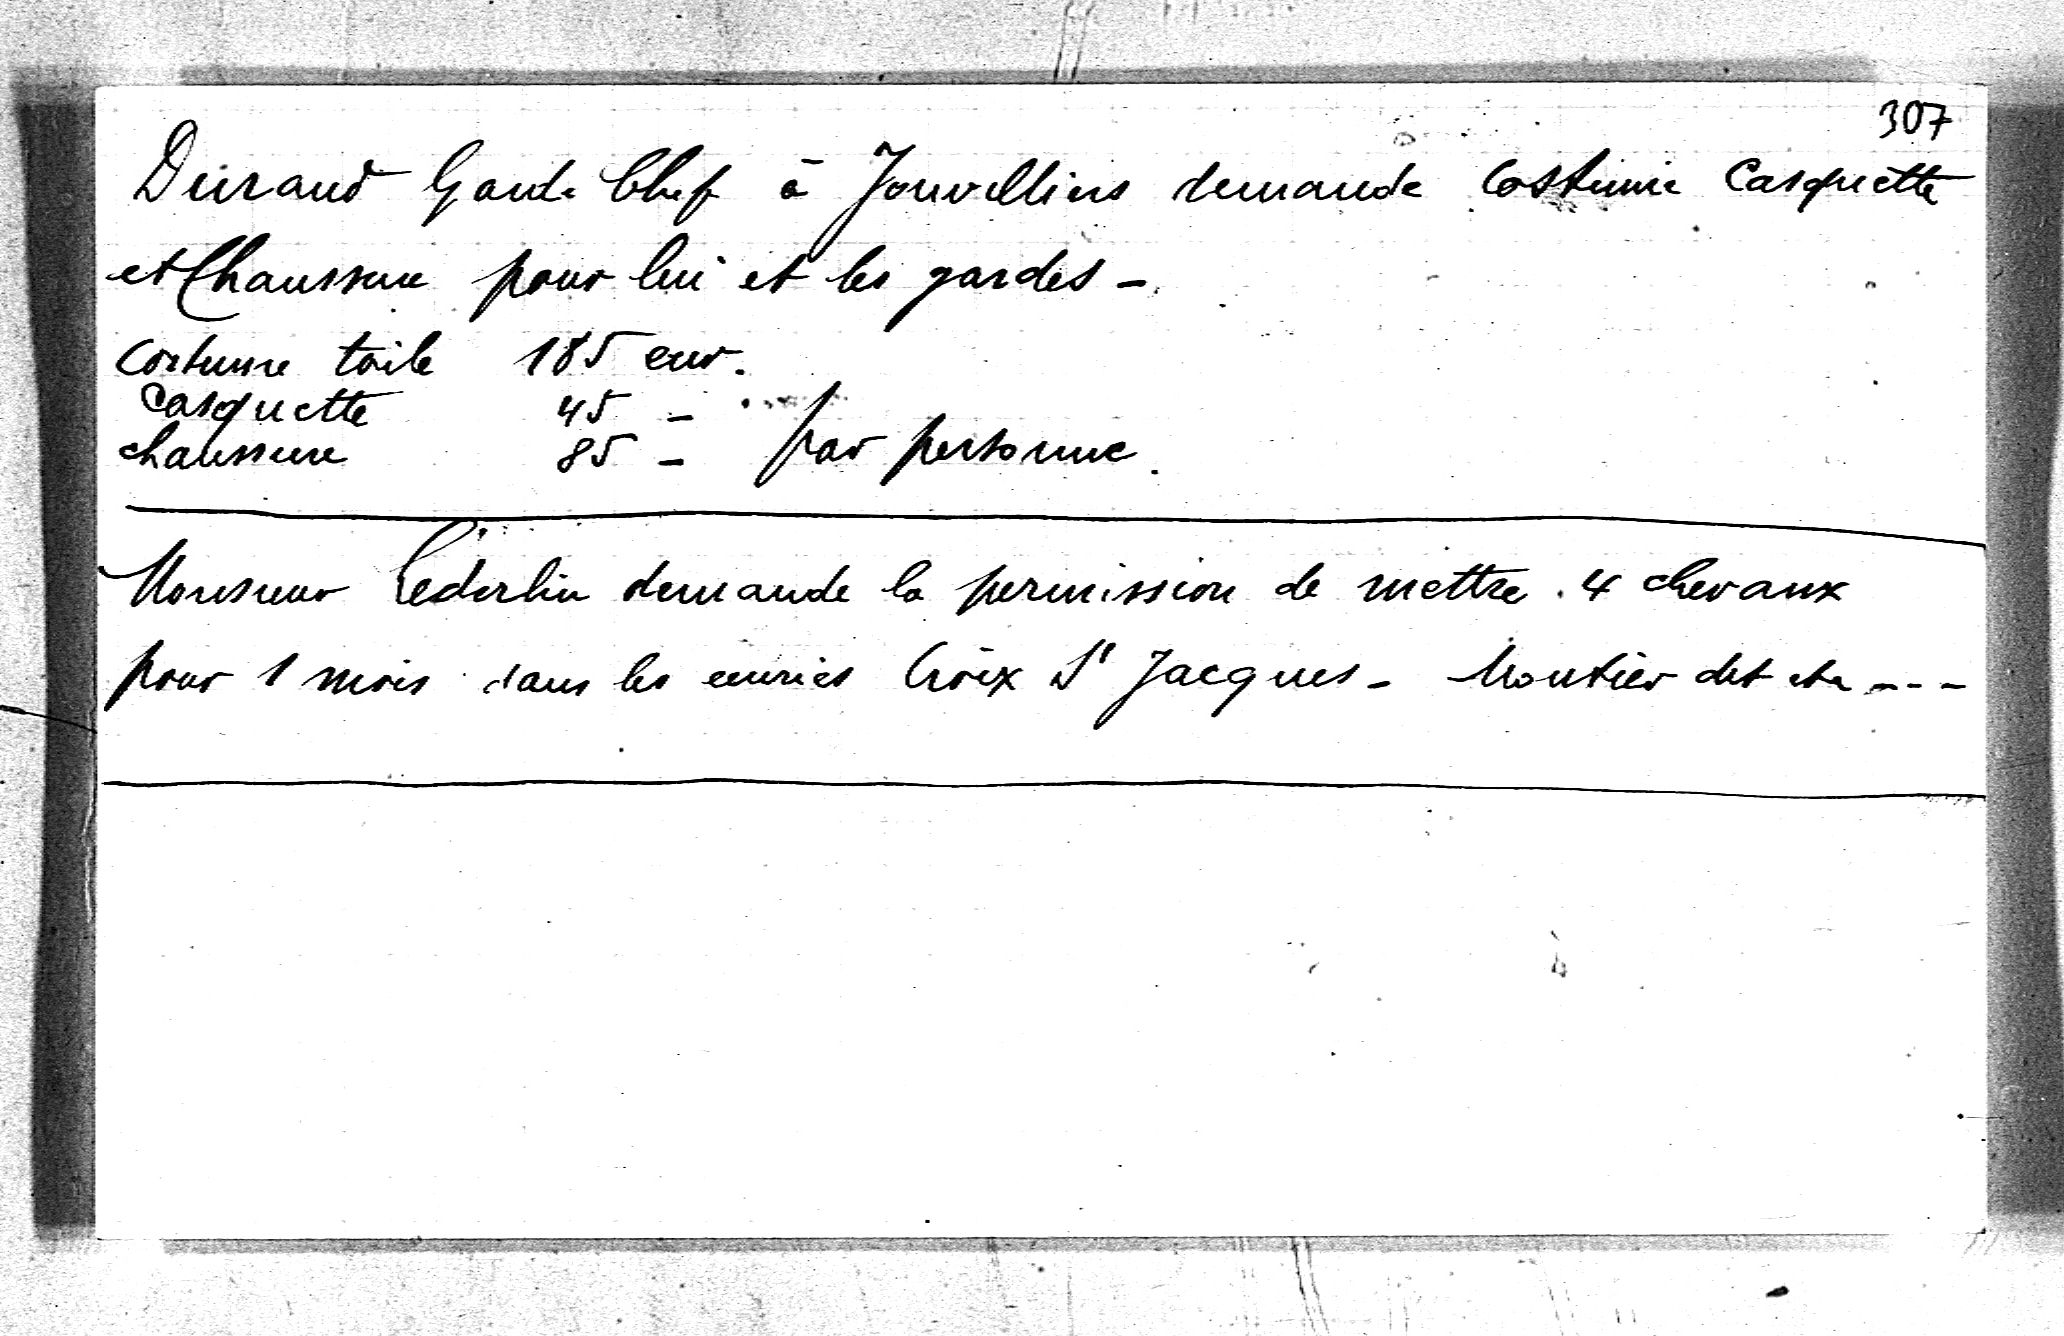 307
Durand Garde Chef à Jouvelliers demande Costume Casquette
et Chaussure pour lui et les gardes -
Costume toile 185 env.
Casquette 45 -
chaussure 85 - par personne.
Monsieur Lederlin demande la permission de mettre 4 chevaux
pour 1 mois dans les ecuries Croix St Jacques - Moutier